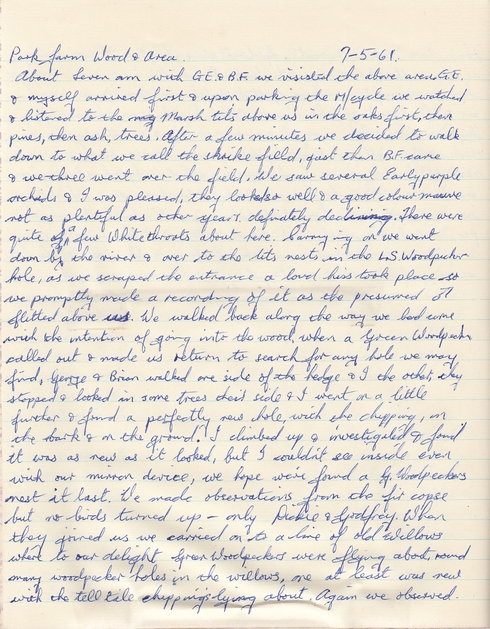 Park farm Wood & Area. 7-5-61.
About Seven am with G.E. & B.F. we visisted the above area, G.E.
& myself arrived first & upon parking the M/cycle we watched
& listened to the Marsh tits above us in the oaks first, then
pines, then ash, trees. After a few minutes we decided to walk
down to what we call the shrike field, just then B.F. came
& we three went over the field. We saw several Early purple
orchids & I was pleased, they looked so well & a good colour mauve
not as plentiful as other years. definately declining. There were
quite a few Whitethroats about here. Carrying on we went
down by the river & over to the tits nests in the L.S. Woodpecker
hole, as we scraped the entrance a loud hiss took place so
we promptly made a recording of it as the presumed ♂
flitted above us. We walked back along the way we had come
with the intention of going into the wood, when a Green Woodpecker
called out & made us return to search for any hole we may
find, George & Brian walked one side of the hedge & I the other, they
stopped & looked in some trees their side & I went on a little
further & found a perfectly new hole, with the chipping, on
the bark & on the ground. I climbed up & investigated & found
it was as new as it looked, but I couldn't see inside even
with our mirror device, we hope we've found a G. Woodpeckers
nest at last. We made observations from the fir copse
but no birds turned up - only Dickie & Godfrey. When
they joined us we carried on to a line of old Willows
where to our delight Green Woodpeckers were flying about, round
many woodpecker holes in the willows, one at least was new
with the tell tale chippings lying about. Again we observed.